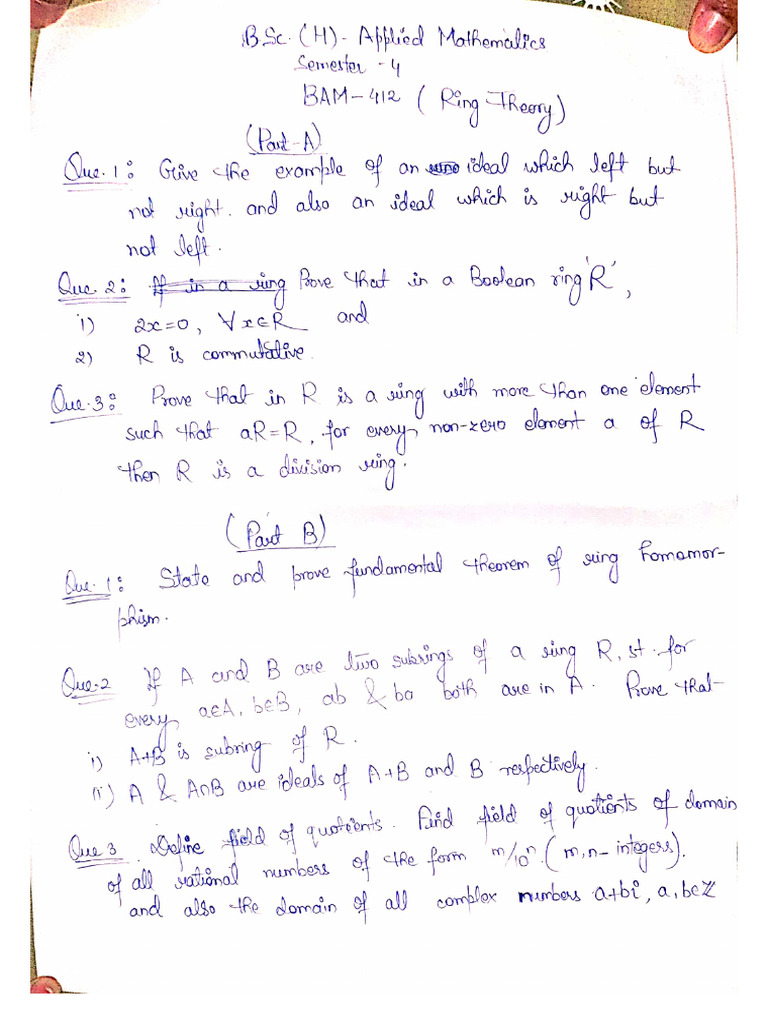 B.Sc. (H) - Applied Mathematics
Semester - 4
BAM-412 ( Ring Theory)
(Part-A)
Que.1: Give the example of an ideal which left but
not right. and also an ideal which is right but
not left.
Que.2: If in a ring Prove that in a Boolean ring 'R',
1) 2x=0, ∀x∈R and
2) R is commutative.
Que.3: Prove that in R is a ring with more than one element
such that aR=R, for every non-zero element a of R
then R is a division ring.
(Part B)
Que.1: State and prove fundamental theorem of ring homomor-
phism.
Que.2 If A and B are two subrings of a ring R, st. for
every a∈A, b∈B, ab & ba both are in A. Prove that
i) A+B is subring of R.
(ii) A & A∩B are ideals of A+B and B respectively.
Que 3 Define field of quotients. Find field of quotients of domain
of all rational numbers of the form m/10ⁿ. (m,n- integers).
and also the domain of all complex numbers a+bi, a,b∈ℤ